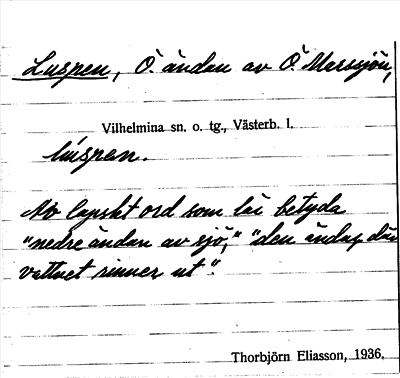 Luspen, Ö. ändan av Ö. Marssjön,
Vilhelmina sn. o. tg., Västerb. l.
lúspen.
Av lapskt ord som lär betyda
"nedre ändan av sjö," "den ändan där
vattnet rinner ut".
Thorbjörn Eliasson, 1936.